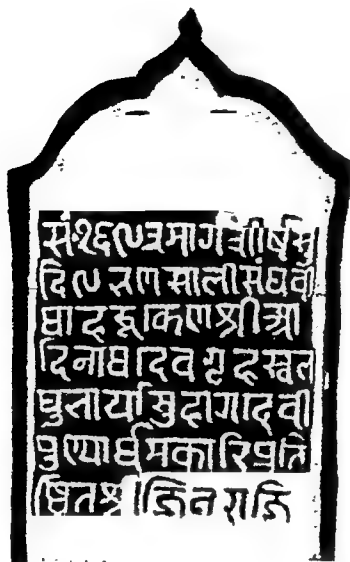 सं॰१६९३मार्गशीर्षसु
दि९भणसालीसंघवी
थाहरूकेणश्रीआ
दिनाथदेवगृहंस्वल
घुभार्यासुहागदेवी
पुण्यार्थमकारिप्रति
ष्ठितंश्रीजिनराजि